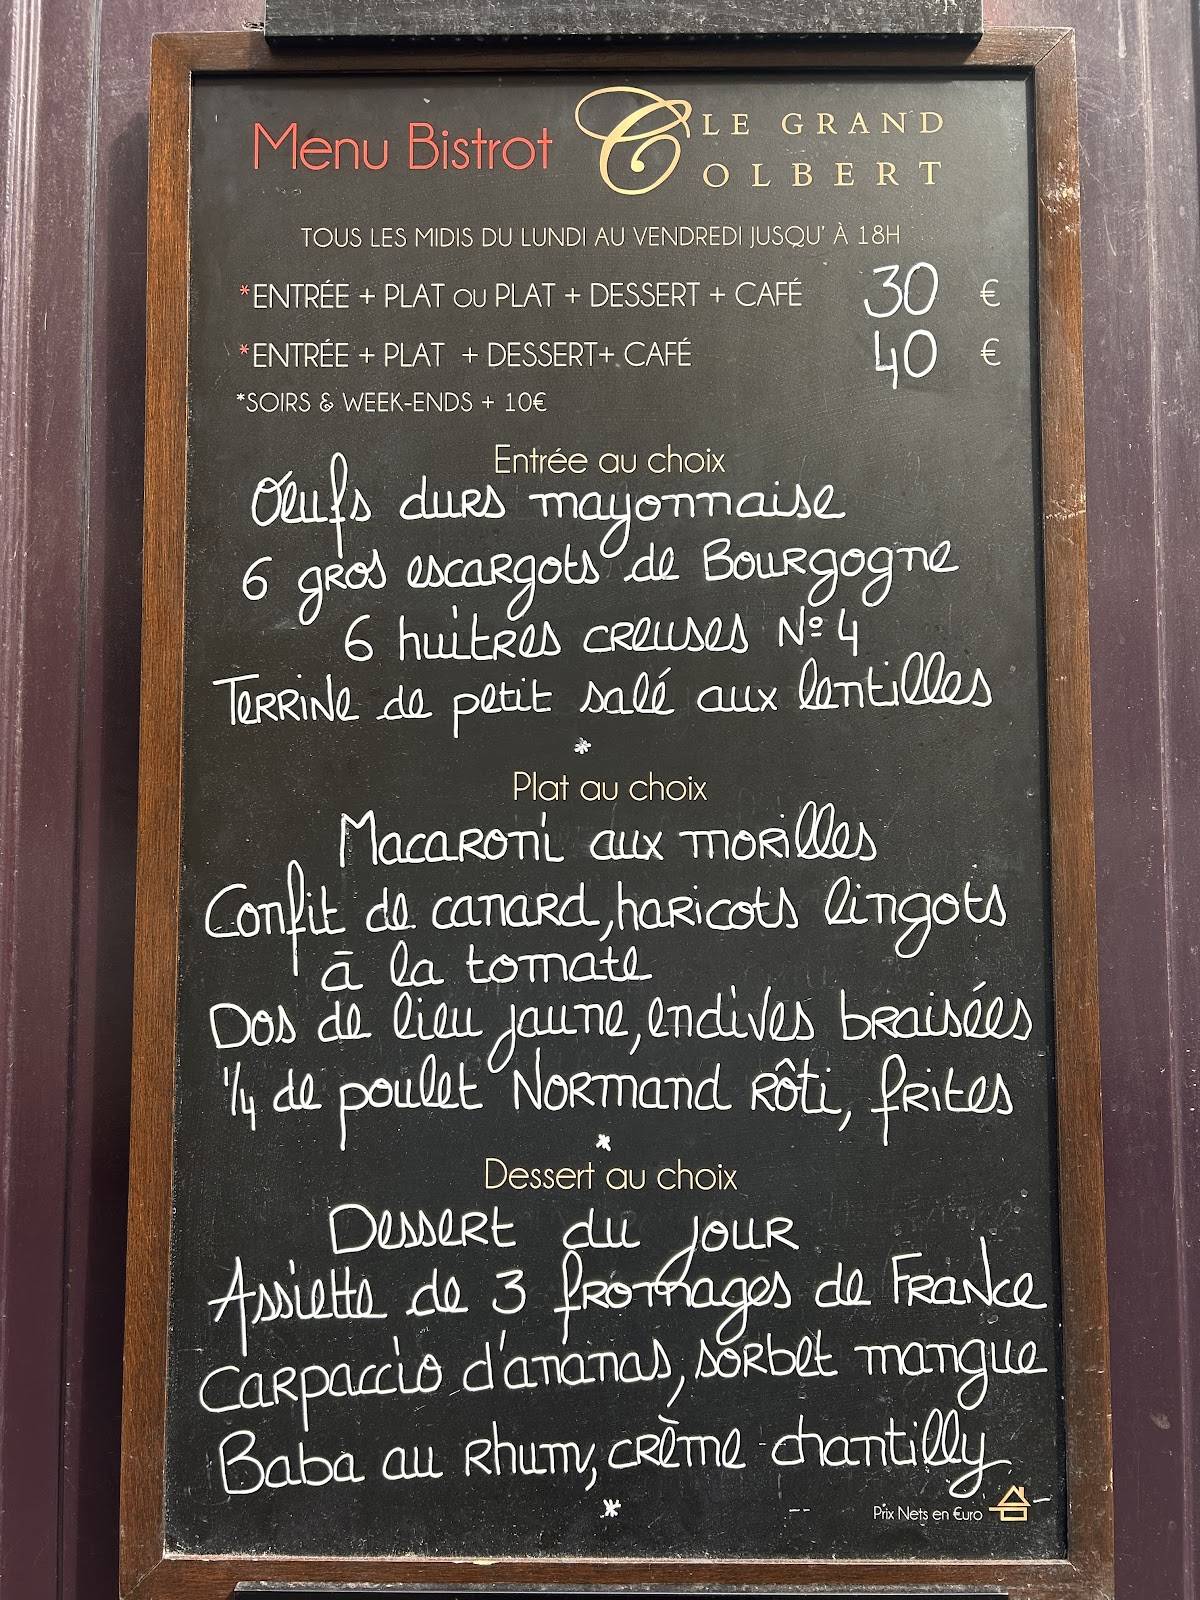 Menu Bistrot
LE GRAND
COLBERT
TOUS LES MIDIS DU LUNDI AU VENDREDI JUSQU' À 18H
*ENTRÉE + PLAT OU PLAT + DESSERT + CAFÉ 30 €
*ENTRÉE + PLAT + DESSERT+ CAFÉ 40 €
*SOIRS & WEEK-ENDS + 10€
Entrée au choix
Œufs durs mayonnaise
6 gros escargots de Bourgogne
6 huitres creuses Nº 4
Terrine de petit salé aux lentilles
*
Plat au choix
Macaroni aux morilles
Confit de canard, haricots lingots
à la tomate
Dos de lieu jaune, endives braisées
1/4 de poulet Normand rôti, frites
*
Dessert au choix
Dessert du jour
Assiette de 3 fromages de France
Carpaccio d'ananas, sorbet mangue
Baba au rhum, crème chantilly
*
Prix Nets en €uro